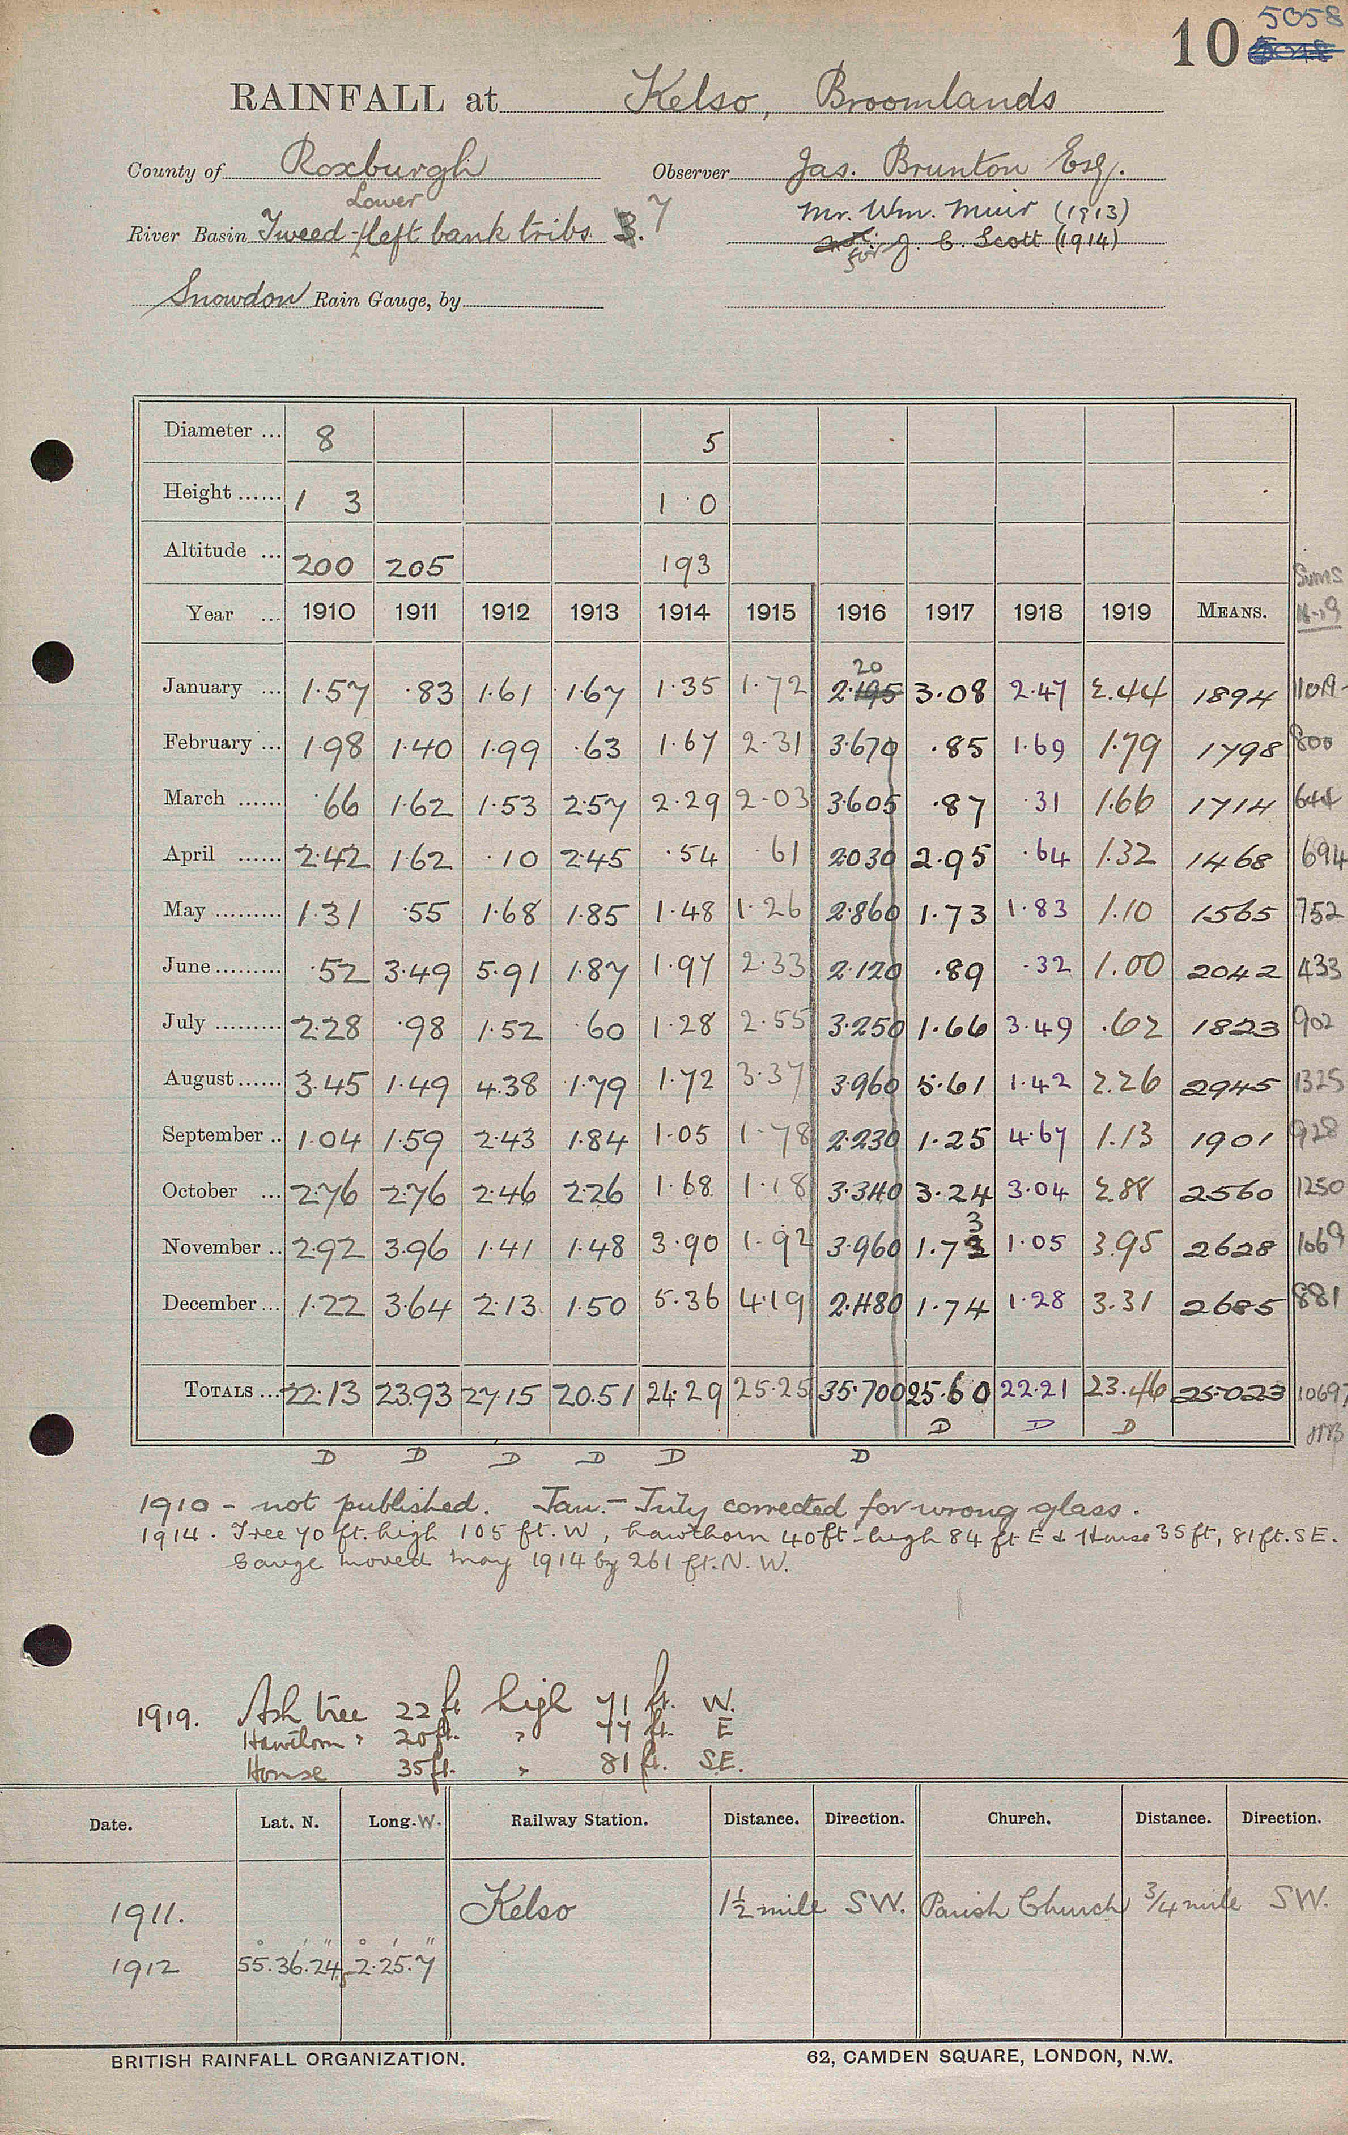 10 5058
RAINFALL at Kelso, Broomlands
County of Roxburgh Observer Jas. Brunton Esq.
Lower
River Basin Tweed - left bank tribs. 7 Mr. Wm. Muir (1913)
for J. C. Scott (1914)
Snowdon Rain Gauge, by
Diameter ... 8 5
Height ...... 1 3 1 0
Altitude ... 200 205 193
Sums
Year ... 1910 1911 1912 1913 1914 1915 1916 1917 1918 1919 MEANS. 16-19
20
January ... 1.57 .83 1.61 1.67 1.35 1.72 2.195 3.08 2.47 2.44 1894 1019
February ... 1.98 1.40 1.99 .63 1.67 2.31 3.670 .85 1.69 1.79 1798 800
March ...... .66 1.62 1.53 2.57 2.29 2.03 3.605 .87 .31 1.66 1714 644
April ...... 2.42 1.62 .10 2.45 .54 .61 2.030 2.95 .64 1.32 1468 694
May ......... 1.31 .55 1.68 1.85 1.48 1.26 2.860 1.73 1.83 1.10 1565 752
June ......... .52 3.49 5.91 1.87 1.97 2.33 2.120 .89 .32 1.00 2042 433
July ......... 2.28 .98 1.52 .60 1.28 2.55 3.250 1.66 3.49 .62 1823 902
August ...... 3.45 1.49 4.38 1.79 1.72 3.37 3.960 5.61 1.42 2.26 2945 1325
September .. 1.04 1.59 2.43 1.84 1.05 1.78 2.230 1.25 4.67 1.13 1901 928
October ... 2.76 2.76 2.46 2.26 1.68 1.18 3.340 3.24 3.04 2.88 2560 1250
3
November .. 2.92 3.96 1.41 1.48 3.90 1.92 3.960 1.73 1.05 3.95 2628 1069
December ... 1.22 3.64 2.13 1.50 5.36 4.19 2.480 1.74 1.28 3.31 2685 881
TOTALS ... 22.13 23.93 27.15 20.51 24.29 25.25 35.700 25.60 22.21 23.46 25.023 10697
D D D
D D D D D D
1910 - not published. Jan. - July corrected for wrong glass.
1914. Tree 70 ft. high 105 ft. W, hawthorn 40ft. high 84 ft E & House 35 ft, 81 ft. S.E.
Gauge moved May 1914 by 261 ft. N.W.
1919. Ash tree 22 ft high 71 ft. W.
Hawthorn " 20 ft. " 77 ft. E
House 35 ft. " 81 ft. S.E.
Date. Lat. N. Long. W. Railway Station. Distance. Direction. Church. Distance. Direction.
1911. Kelso 1½ mile SW. Parish Church ¾ mile SW.
1912 55° 36' 24" 2° 25' 7"
BRITISH RAINFALL ORGANIZATION. 62, CAMDEN SQUARE, LONDON, N.W.